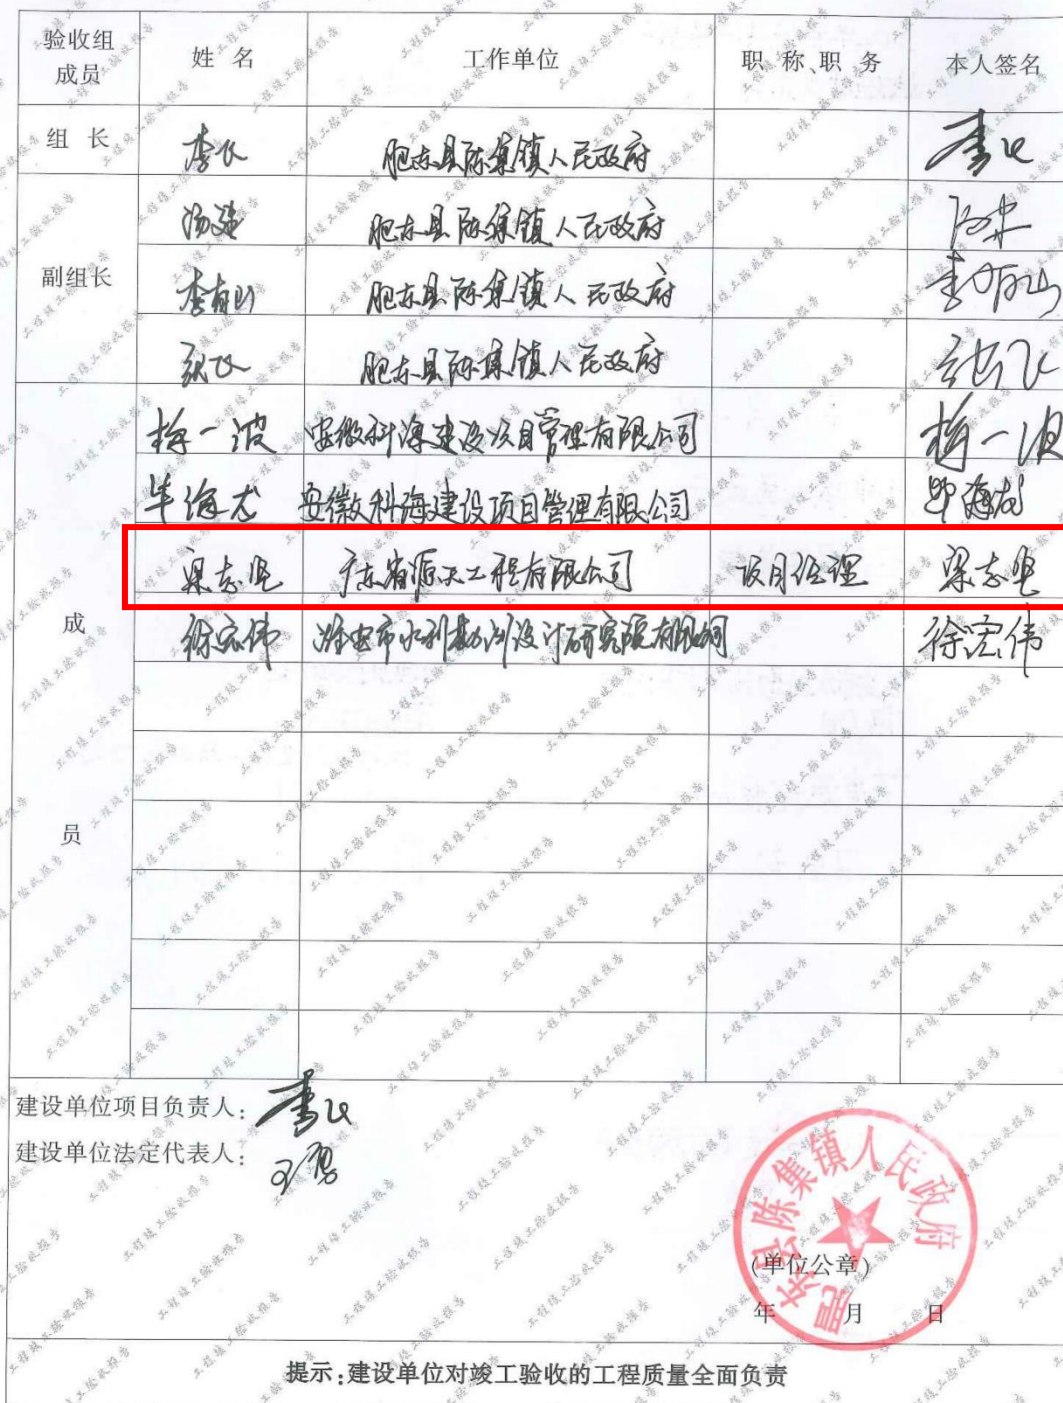 验收组成员 姓 名 工作单位 职 称、职 务 本人签名
组 长 李飞 肥东县陈集镇人民政府 李飞
副组长
肥东县陈集镇人民政府
李有山 肥东县陈集镇人民政府 李有山
张飞 肥东县陈集镇人民政府 张飞
成 员
梅一波 安徽科海建设项目管理有限公司 梅一波
毕海龙 安徽科海建设项目管理有限公司 毕海龙
梁志坚 广东省源天工程有限公司 项目经理 梁志坚
徐宏伟 淮安市水利勘测设计研究院有限公司 徐宏伟
建设单位项目负责人： 李飞
建设单位法定代表人：
肥东县陈集镇人民政府
(单位公章)
年 月 日
提示：建设单位对竣工验收的工程质量全面负责
工程竣工验收报告